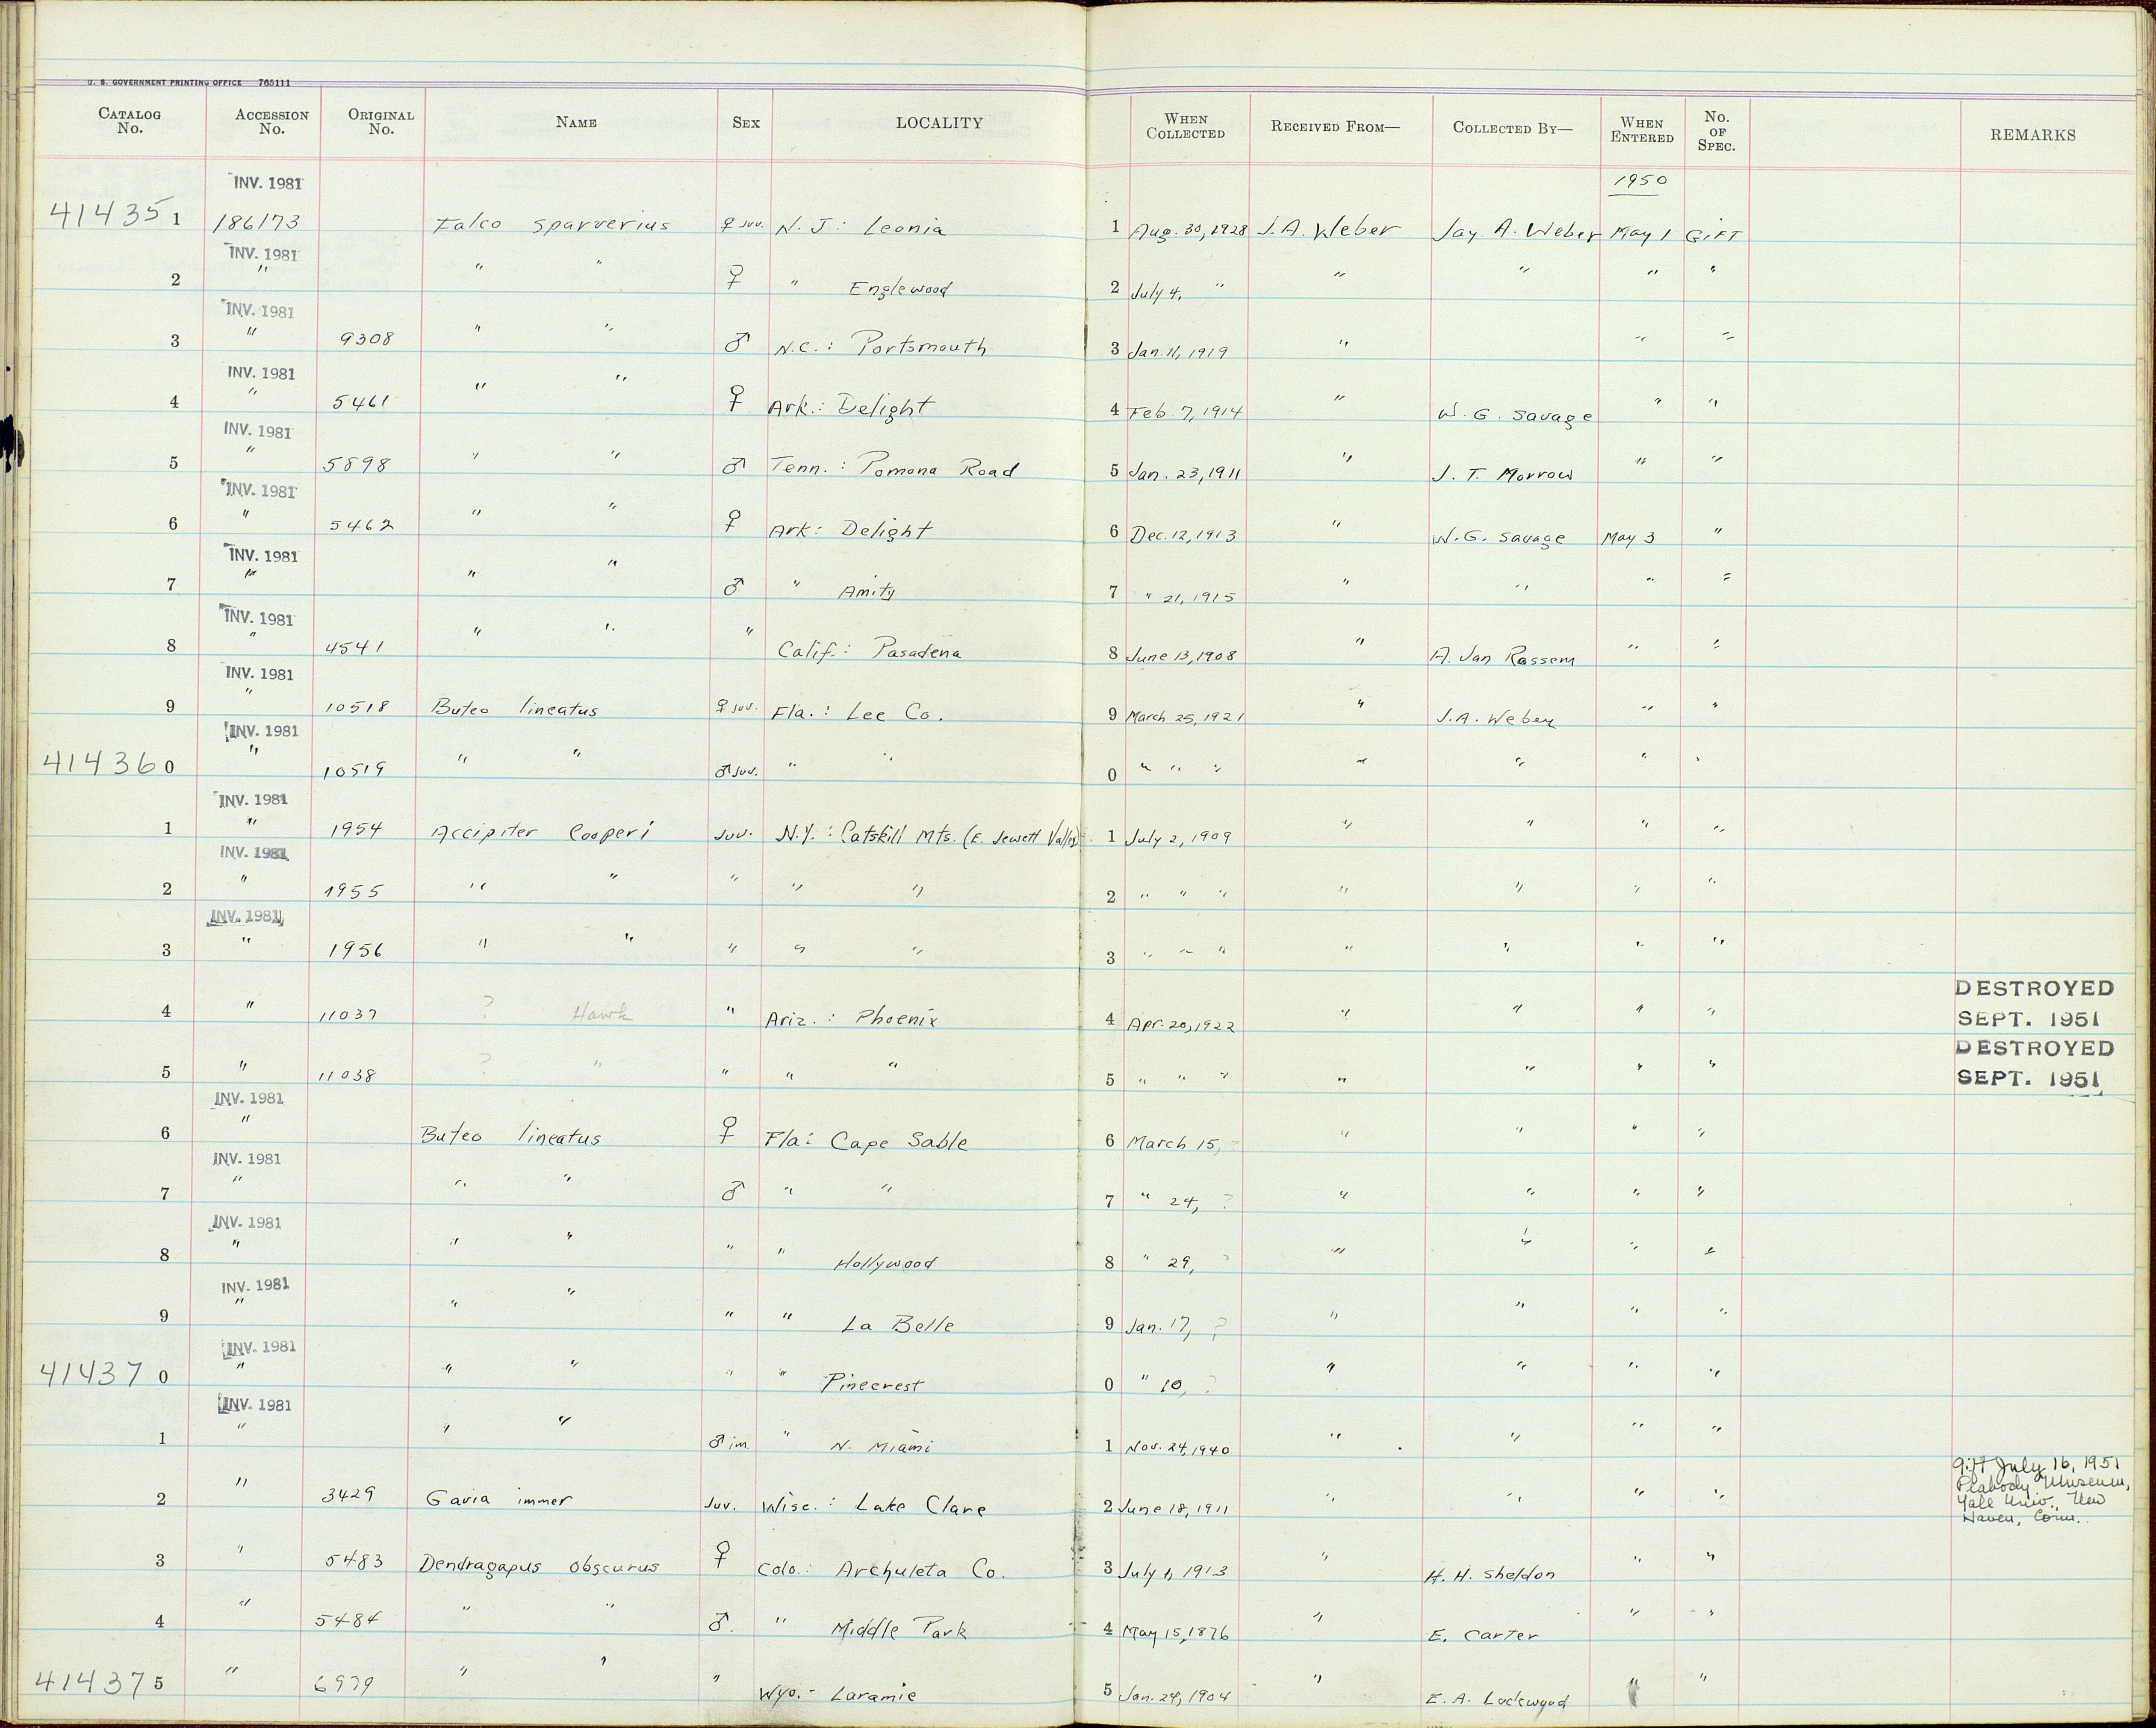 U. S. GOVERNMENT PRINTING OFFICE 765111
CATALOG No. ACCESSION No. ORIGINAL No. NAME SEX LOCALITY WHEN COLLECTED RECEIVED FROM— COLLECTED BY— WHEN ENTERED No. OF SPEC. REMARKS
INV. 1981 1950
41435 1 186173 Falco sparverius ♀ juv. N. J: Leonia 1 Aug. 30, 1928 J. A. Weber Jay. A. Weber May 1 GIFT
INV. 1981
2 " " " ♀ " Englewood 2 July 4, " " " " "
INV. 1981
3 " 9308 " " ♂ N.C.: Portsmouth 3 Jan. 11, 1919 " " "
INV. 1981
4 " 5461 " " ♀ Ark.: Delight 4 Feb. 7, 1914 " W. G. Savage " "
INV. 1981
5 " 5898 " " ♂ Tenn.: Pomona Road 5 Jan. 23, 1911 " J. T. Morrow " "
INV. 1981
6 " 5462 " " ♀ Ark: Delight 6 Dec. 12, 1913 " W. G. Savage May 3 "
INV. 1981
7 " " " ♂ " Amity 7 " 21, 1915 " " " "
INV. 1981
8 " 4541 " " " Calif.: Pasadena 8 June 13, 1908 " A. Van Rossem " "
INV. 1981
9 " 10518 Buteo lineatus ♀ juv. Fla.: Lee Co. 9 March 25, 1921 " J. A. Weber " "
INV. 1981
41436 0 " 10519 " " ♂ juv. " " 0 " " " " " " "
INV. 1981
1 " 1954 Accipiter cooperi juv. N.Y.: Catskill Mts. (E. Jewett Valley) 1 July 2, 1909 " " " "
INV. 1981
2 " 1955 " " " " " 2 " " " " " " "
INV. 1981
3 " 1956 " " " " " 3 " " " " " " "
4 " 11037 ? Hawk " Ariz.: Phoenix 4 Apr. 20, 1922 " " " " DESTROYED SEPT. 1951
5 " 11038 ? " " " " 5 " " " " " " " DESTROYED SEPT. 1951
INV. 1981
6 " Buteo lineatus ♀ Fla: Cape Sable 6 March 15, ? " " " "
INV. 1981
7 " " " ♂ " " 7 " 24, ? " " " "
INV. 1981
8 " " " " " Hollywood 8 " 29, ? " " " "
INV. 1981
9 " " " " " La Belle 9 Jan. 17, ? " " " "
INV. 1981
41437 0 " " " " " Pinecrest 0 " 10, ? " " " "
INV. 1981
1 " " " ♂ im. " N. Miami 1 Nov. 24, 1940 " " " "
2 " 3429 Gavia immer juv. Wisc.: Lake Clare 2 June 18, 1911 " " " " gift July 16, 1951
Peabody Museum,
Yale Univ., New
Haven, Conn.
3 " 5483 Dendragapus obscurus ♀ Colo.: Archuleta Co. 3 July 1, 1913 " H. H. Sheldon " "
4 " 5484 " " ♂. " Middle Park 4 May 15, 1876 " E. Carter " "
41437 5 " 6979 " " " Wyo.- Laramie 5 Jan. 24, 1904 " E. A. Lockwood " "